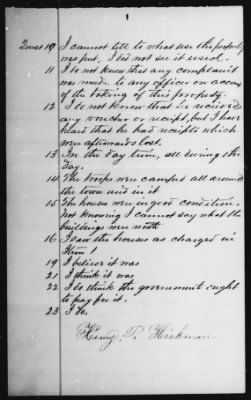 Quest 10 I cannot tell to what use the property
was put, I did not see it used.
11 I do not know that any complaint
was made to any officer on account
of the taking of this property.
12 I do not know that he received
any voucher or receipt, but I have
heard that he had receipts which
were afterwards lost.
13 In the day time, all during the
day.
14 The troops were camped all around
the town and in it
15 The houses were in good condition.
Not knowing I cannot say what the
buildings were worth
16 I saw the houses as charged in
Item 1
19 I believe it was
21 I think it was
22 I do think the government ought
to pay for it.
23 I do.
Henry P. Hickman